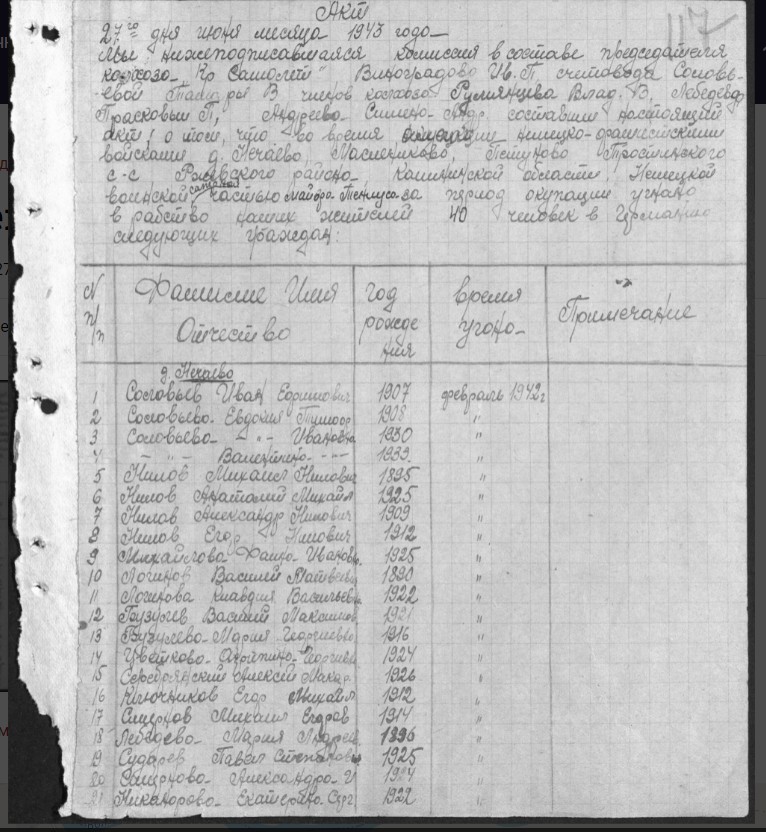 117
Акт
27го дня июня месяца 1943 года
Мы нижеподписавшаяся комиссия в составе председателя
колхоза "Кр Самолет" Виноградова Ив. П, счетовода Соловь-
евой Тамары В членов колхоза Румянцева Влад. В, Лебедева
Прасковьи П, Андреева Симона Андр. составили настоящий
акт о том, что во время оккупации немецко-фашистскими
войсками д. Нечаево, Маслениково, Петуново
с-с Ржевского района Калининской области Немецкой
воинской частью майора за период окупации угнано
в рабство наших жителей 40 человек в Германию
следующих граждан:
N п/п Фамилие Имя Отчество год рождения время угона Примечание
д. Нечаево
1 Соловьев Иван Ефимович 1907 февраль 1942г
2 Соловьева Евдокия 1908 "
3 Соловьева - " - Ивановна 1930 "
4 - " - Валентина - " - 1939 "
5 Нилов Михаил Нилович 1895 "
6 Нилов Анатолий Михайл 1925 "
7 Нилов Александр Нилович 1909 "
8 Нилов Егор Нилович 1912 "
9 Михайлова Фаина Ивановна 1925 "
10 Логинов Василий Матвеевич 1890 "
11 Логинова Клавдия Васильевна 1922 "
12 Василий Максимов 1921 "
13 Мария Георгиевна 1916 "
14 Цветкова Агрипина Георгиев 1924 "
15 Серебрянский Алексей Макар 1926 "
16 Ключников Егор Михайл 1912 "
17 Смирнов Михаил Егоров 1914 "
18 Лебедева Мария Андреев 1896 "
19 Сударев Павел Степанович 1925 "
20 Смирнова Александра И 1924 "
21 Никанорова Екатерина Серг 1922 "